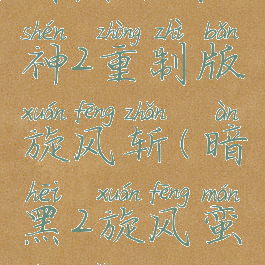 shén zhòng zhì bǎn
神2重制版
xuán fēng zhǎn àn
旋风斩(暗
hēi xuán fēng mán
黑2旋风蛮